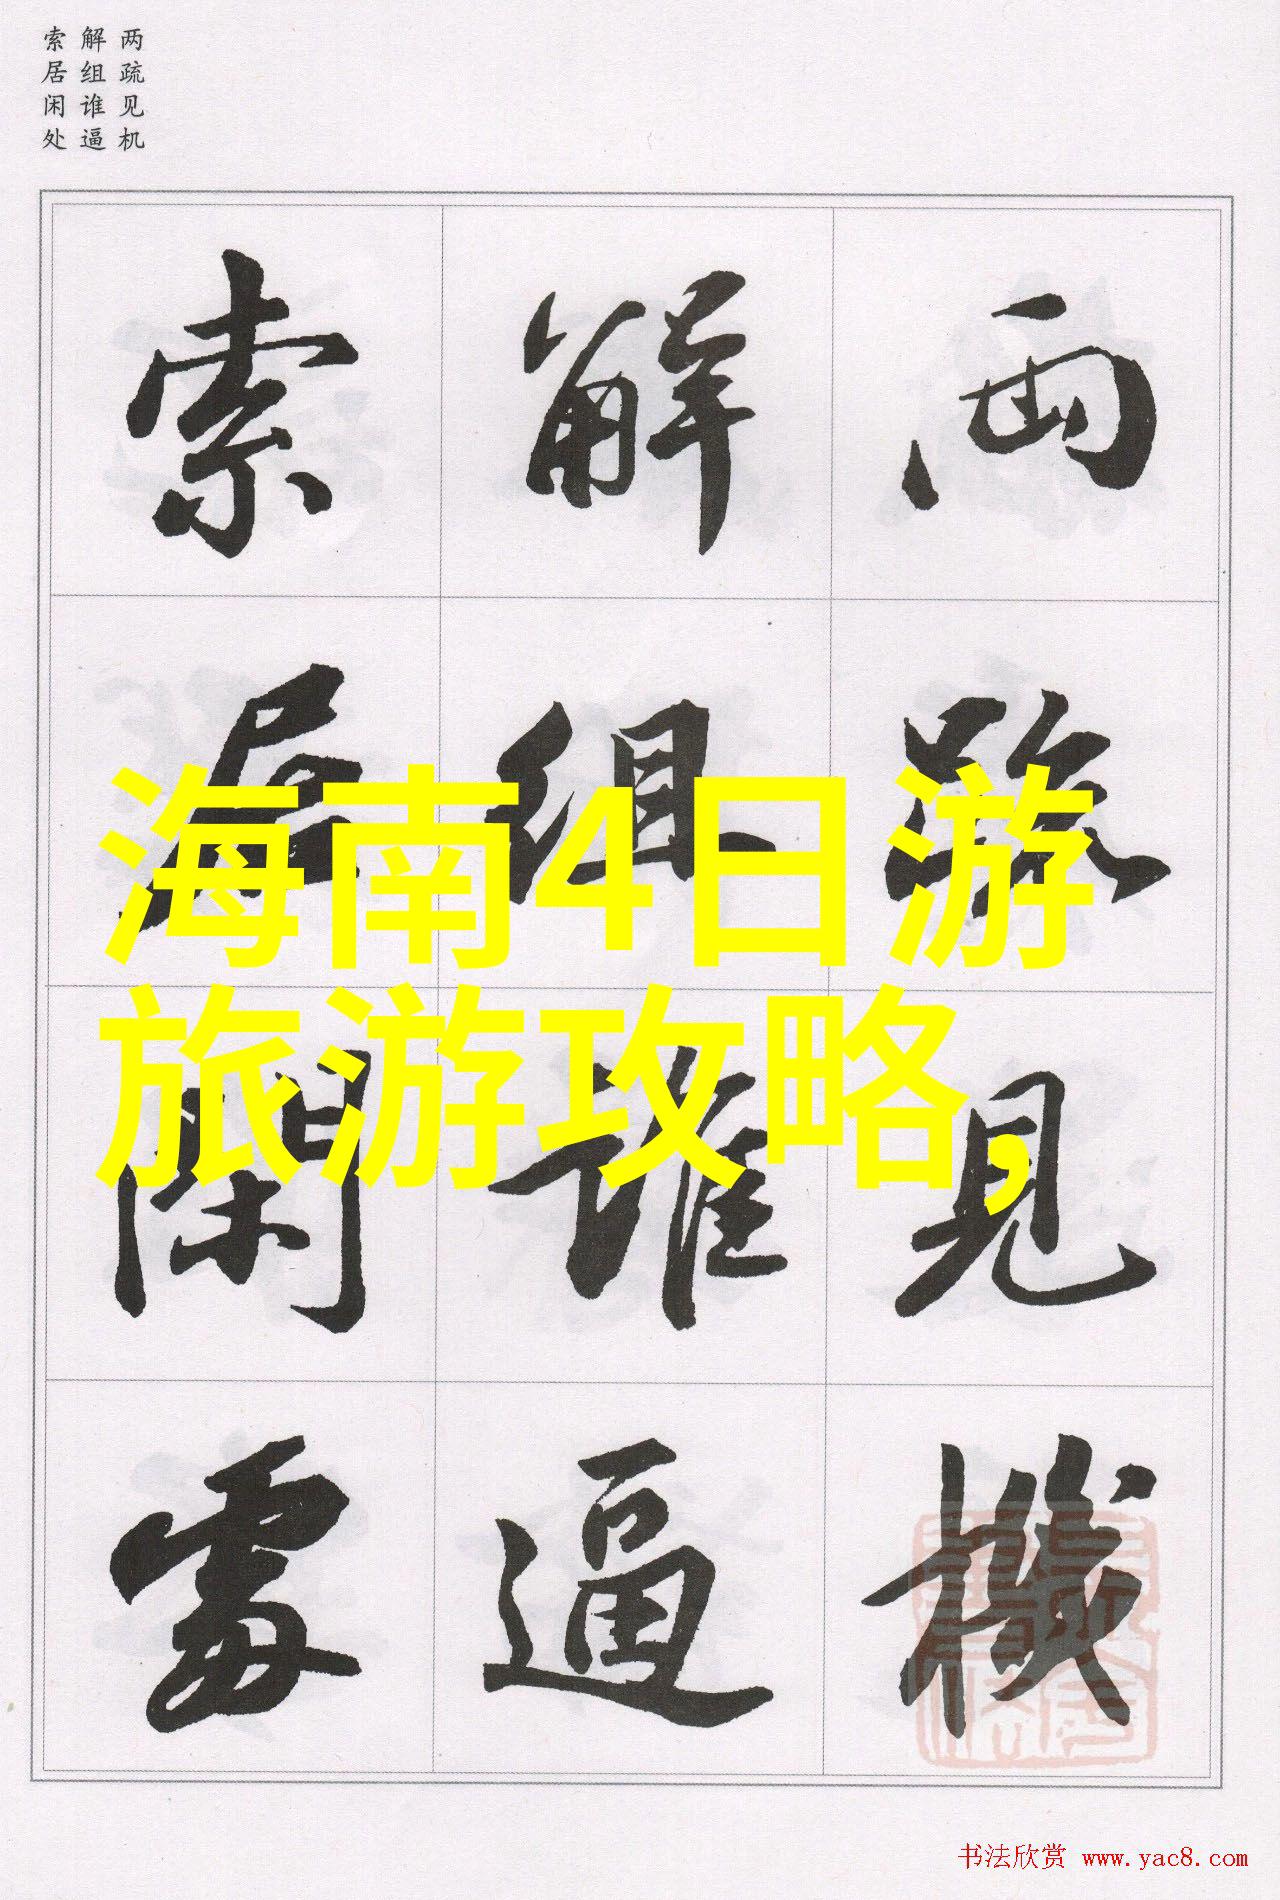 两疏见机
解组谁逼
索居闲处
兩疏見機
解組誰逼
索居閑處
海南4日游
旅游攻略,
书法欣赏 www.yac8.com